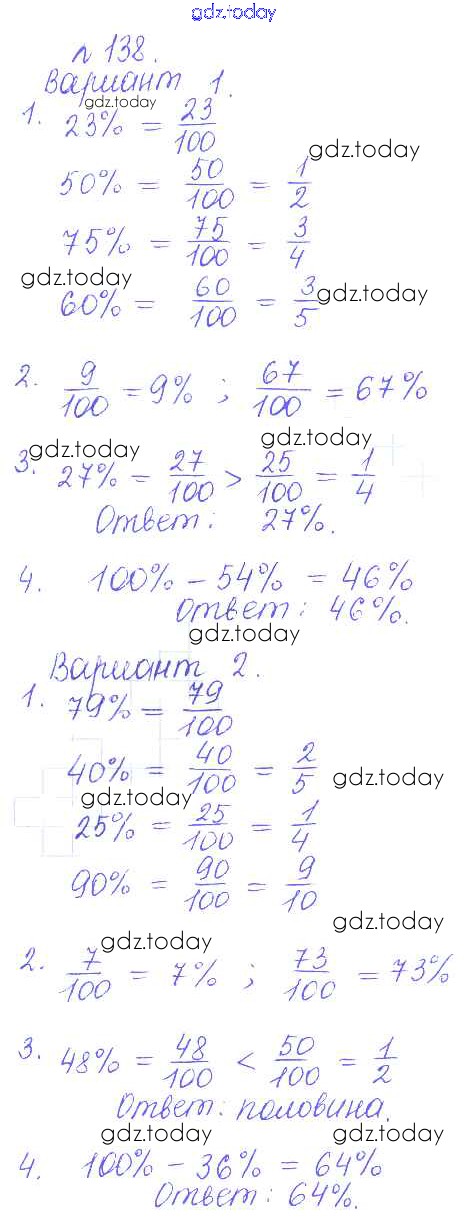 gdz.today
№ 138.
Вариант 1.
gdz.today
1. 23% = 23/100
gdz.today
50% = 50/100 = 1/2
75% = 75/100 = 3/4
gdz.today
gdz.today
60% = 60/100 = 3/5
2. 9/100 = 9% ; 67/100 = 67%
gdz.today
gdz.today
3. 27% = 27/100 > 25/100 = 1/4
Ответ: 27%.
4. 100% - 54% = 46%
Ответ: 46%.
gdz.today
Вариант 2.
1. 79% = 79/100
40% = 40/100 = 2/5
gdz.today
gdz.today
25% = 25/100 = 1/4
90% = 90/100 = 9/10
gdz.today
gdz.today
2. 7/100 = 7% ; 73/100 = 73%
3. 48% = 48/100 < 50/100 = 1/2
Ответ: половина.
gdz.today
gdz.today
4. 100% - 36% = 64%
Ответ: 64%.